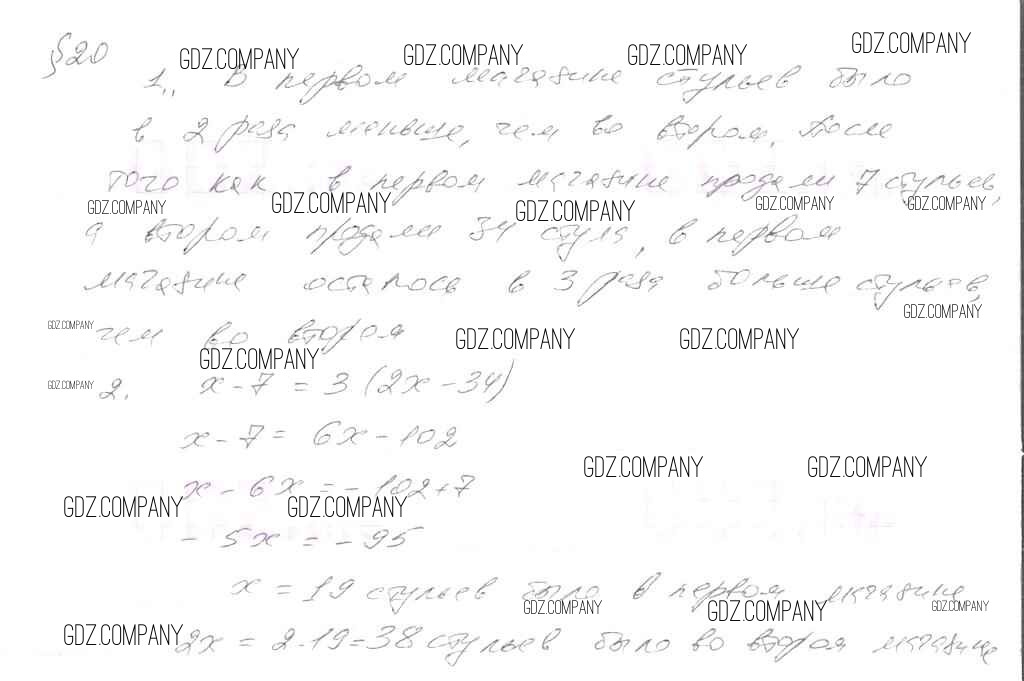 §20
GDZ.COMPANY GDZ.COMPANY GDZ.COMPANY GDZ.COMPANY
1. В первом магазине стульев было
в 2 раза меньше, чем во втором. После
того как в первом магазине продали 7 стульев,
GDZ.COMPANY GDZ.COMPANY GDZ.COMPANY GDZ.COMPANY GDZ.COMPANY
а втором продали 34 стула, в первом
магазине осталось в 3 раза больше стульев,
GDZ.COMPANY
GDZ.COMPANY чем во втором GDZ.COMPANY GDZ.COMPANY
GDZ.COMPANY
GDZ.COMPANY 2. x - 7 = 3 (2x - 34)
x - 7 = 6x - 102
GDZ.COMPANY GDZ.COMPANY
x - 6x = - 102 + 7
GDZ.COMPANY GDZ.COMPANY
- 5x = - 95
x = 19 стульев было в первом магазине
GDZ.COMPANY GDZ.COMPANY GDZ.COMPANY
GDZ.COMPANY 2x = 2·19 = 38 стульев было во втором магазине